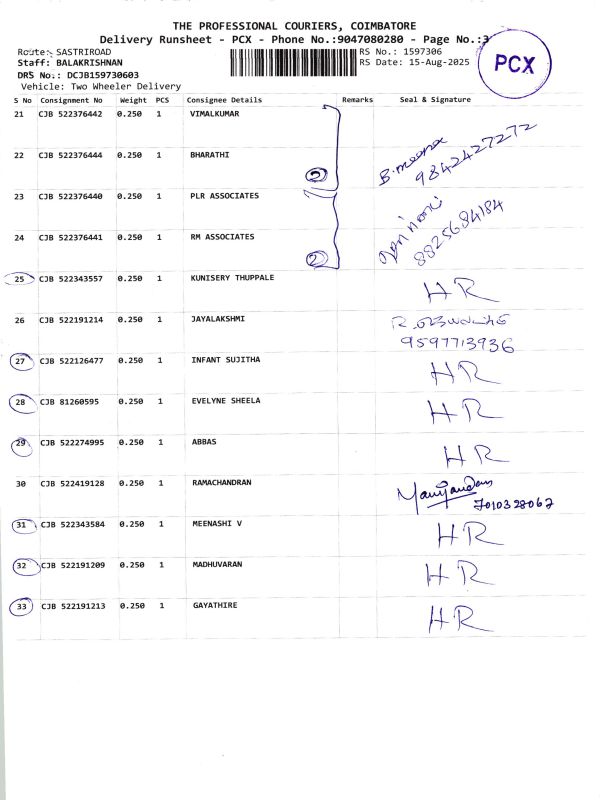 THE PROFESSIONAL COURIERS, COIMBATORE
Delivery Runsheet - PCX - Phone No.:9047080280 - Page No.:3
Route: SASTRIROAD
RS No.: 1597306
Staff: BALAKRISHNAN
RS Date: 15-Aug-2025
DRS No.: DCJB159730603
Vehicle: Two Wheeler Delivery
PCX
S No Consignment No Weight PCS Consignee Details Remarks Seal & Signature
21 CJB 522376442 0.250 1 VIMALKUMAR
22 CJB 522376444 0.250 1 BHARATHI 2 B. meena
9842427272
23 CJB 522376440 0.250 1 PLR ASSOCIATES
24 CJB 522376441 0.250 1 RM ASSOCIATES 2
8825684184
25 CJB 522343557 0.250 1 KUNISERY THUPPALE HR
26 CJB 522191214 0.250 1 JAYALAKSHMI R.
9597713936
27 CJB 522126477 0.250 1 INFANT SUJITHA HR
28 CJB 81260595 0.250 1 EVELYNE SHEELA HR
29 CJB 522274995 0.250 1 ABBAS HR
30 CJB 522419128 0.250 1 RAMACHANDRAN Manijandan
7010328067
31 CJB 522343584 0.250 1 MEENASHI V HR
32 CJB 522191209 0.250 1 MADHUVARAN HR
33 CJB 522191213 0.250 1 GAYATHIRE HR